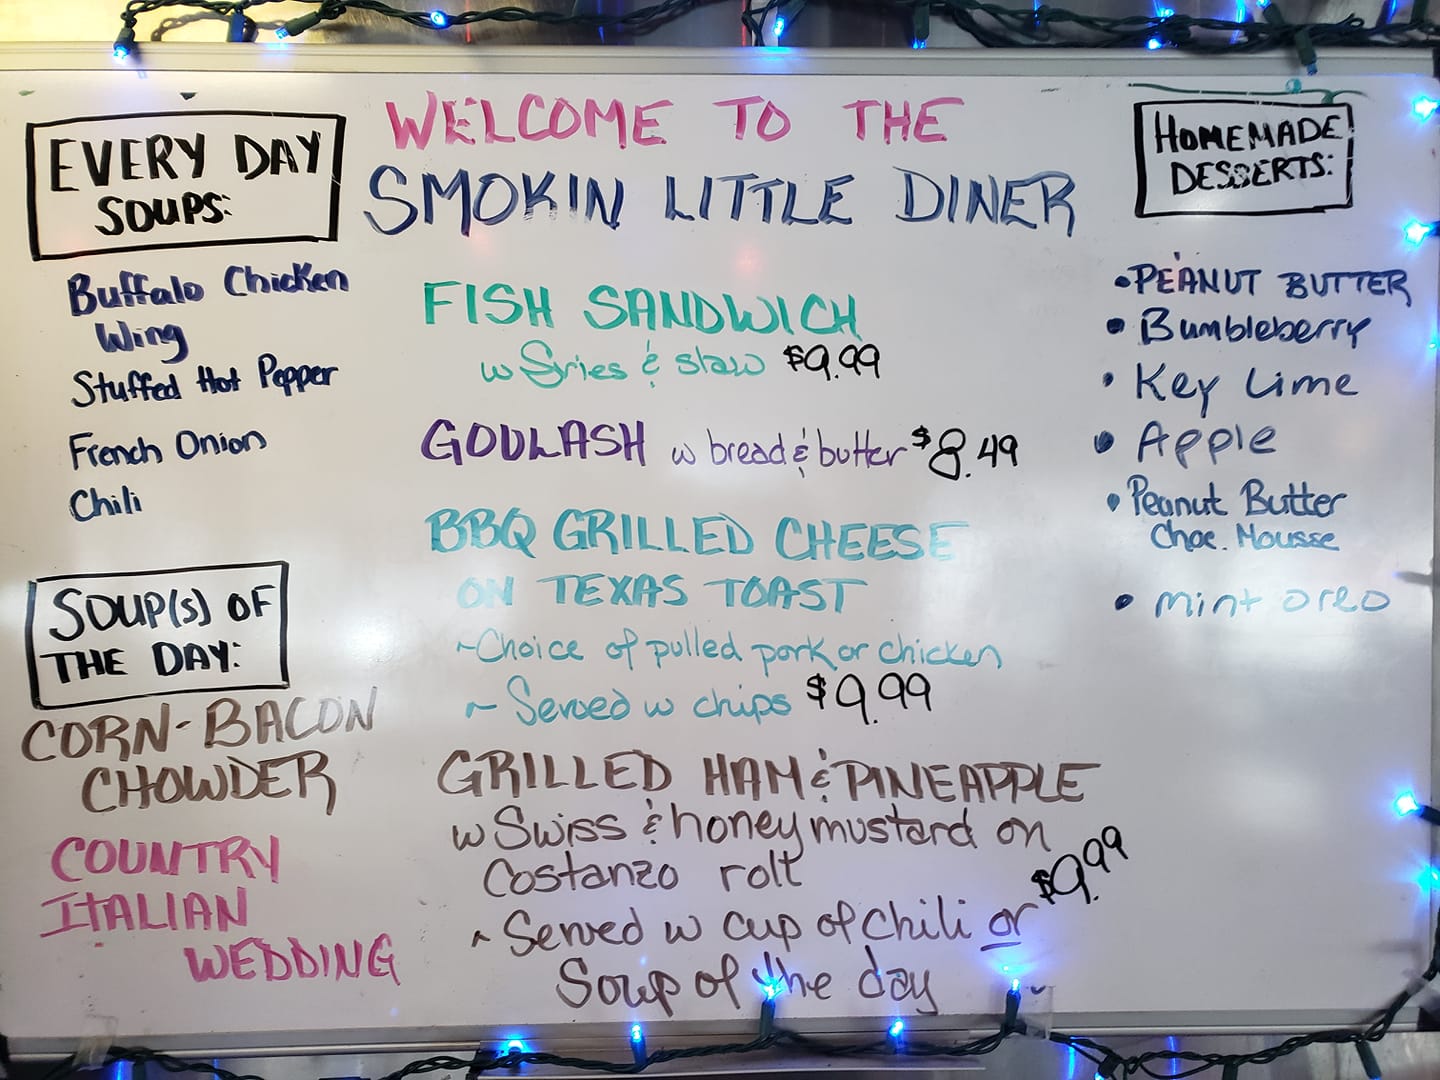 WELCOME TO THE
SMOKIN LITTLE DINER
EVERY DAY
SOUPS:
Buffalo Chicken
Wing
Stuffed Hot Pepper
French Onion
Chili
SOUP(S) OF
THE DAY:
CORN-BACON
CHOWDER
COUNTRY
ITALIAN
WEDDING
FISH SANDWICH
w fries & slaw $9.99
GOULASH w bread & butter $8.49
BBQ GRILLED CHEESE
ON TEXAS TOAST
~Choice of pulled pork or chicken
~ Served w chips $9.99
GRILLED HAM & PINEAPPLE
w Swiss & honey mustard on
Costanzo roll $9.99
~ Served w cup of chili or
Soup of the day
HOMEMADE
DESSERTS:
• PEANUT BUTTER
• Bumbleberry
• Key Lime
• Apple
• Peanut Butter
Choc. Mousse
• mint oreo